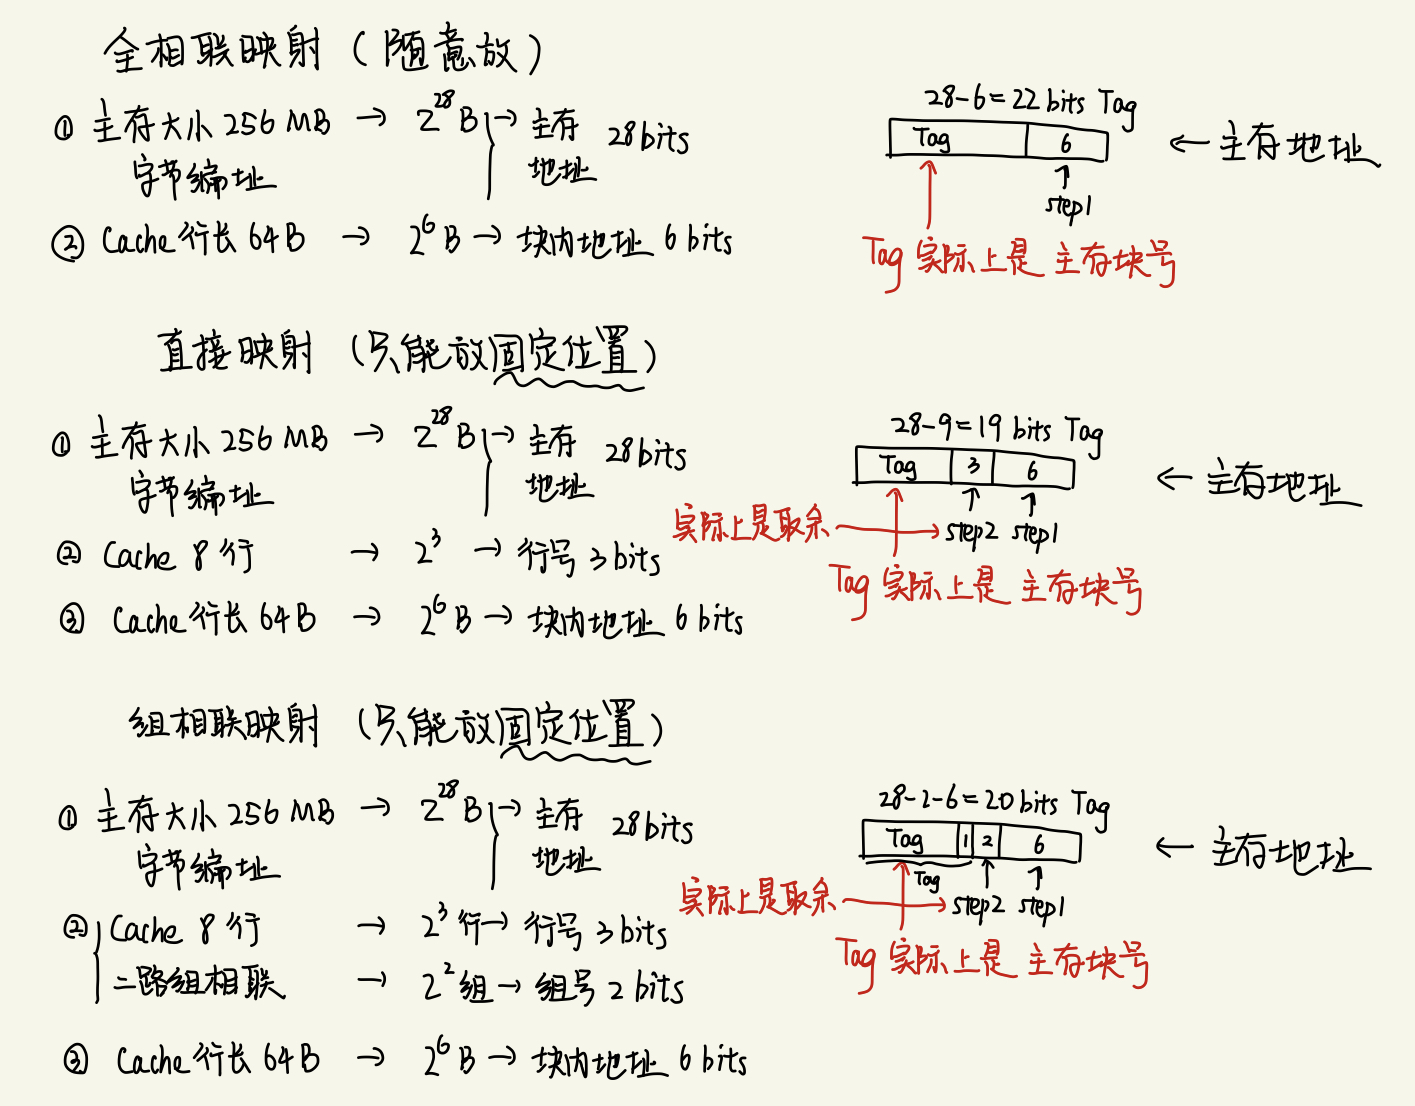 全相联映射（随意放）
① 主存大小 256 MB → 2^28 B → 主存 28 bits
字节编址 地址
② Cache 行长 64B → 2^6 B → 块内地址 6 bits
28-6=22 bits Tag
Tag 6 ← 主存地址
step1
Tag 实际上是 主存块号
直接映射（只能放固定位置）
① 主存大小 256 MB → 2^28 B → 主存 28 bits
字节编址 地址
② Cache 8 行 → 2^3 → 行号 3 bits
③ Cache 行长 64B → 2^6 B → 块内地址 6 bits
28-9=19 bits Tag
Tag 3 6 ← 主存地址
实际上是取余 → step2 step1
Tag 实际上是 主存块号
组相联映射（只能放固定位置）
① 主存大小 256 MB → 2^28 B → 主存 28 bits
字节编址 地址
② Cache 8 行 → 2^3 行 → 行号 3 bits
二路组相联 → 2^2 组 → 组号 2 bits
③ Cache 行长 64B → 2^6 B → 块内地址 6 bits
28-2-6=20 bits Tag
Tag 1 2 6 ← 主存地址
Tag
实际上是取余 → step2 step1
Tag 实际上是 主存块号